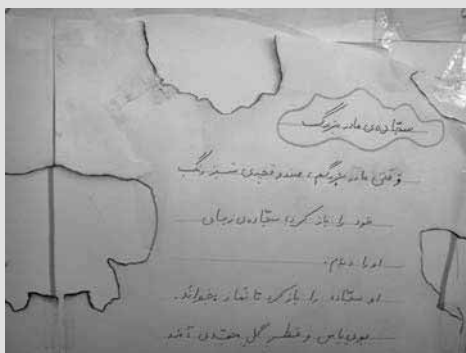 سجّاده‌ی مادر بزرگ
وقتی مادر بزرگم، صندوقچه‌ی سبز رنگ
خود را باز کرد، سجّاده‌ی زیبای
او را دیدم.
او سجّاده را باز کرد تا نماز بخواند.
بوی یاس و عطر گل محمّدی آمد